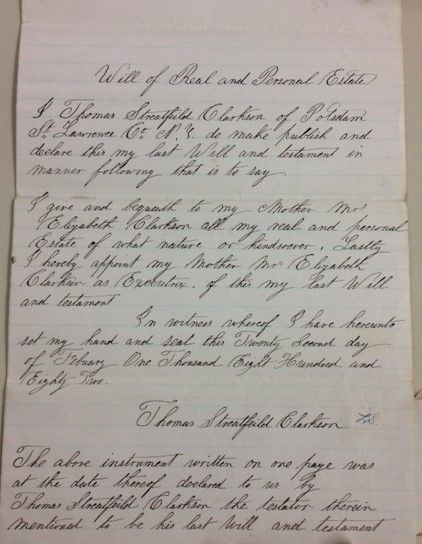 Will of Real and Personal Estate
I Thomas Streatfeild Clarkson of Potsdam
St. Lawrence Co. N.Y. do make publish and
declare this my last Will and testament in
manner following that is to say
I give and bequeath to my Mother Mrs
Elizabeth Clarkson all my real and personal
Estate of what nature or kindsoever. Lastly
I hereby appoint my Mother Mrs. Elizabeth
Clarkson as Executrix. of this my last Will
and testament
In witness whereof I have hereunto
set my hand and seal this Twenty Second day
of Febuary One Thousand Eight Hundred and
Eighty Two.
Thomas Streatfeild Clarkson
The above instrument written on one page was
at the date thereof declared to us by
Thomas Streatfeild Clarkson the testator therein
mentioned to be his last Will and testament